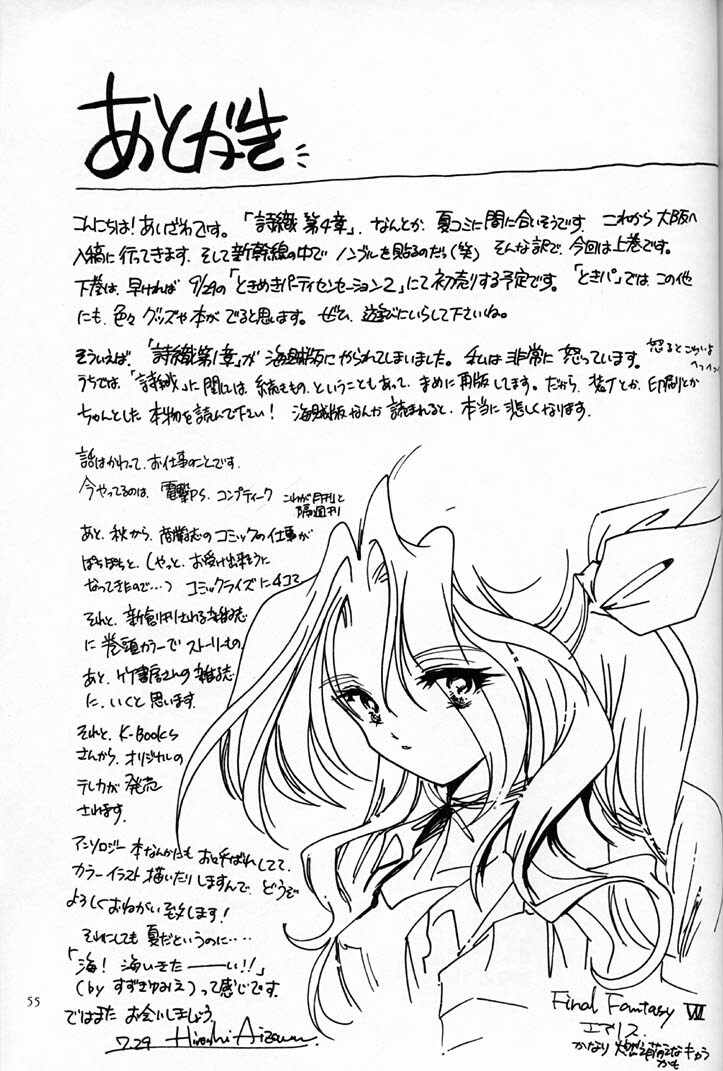 あとがき
こんにちは!あいざわです。「詩織 第4章」、なんとか、夏コミに間に合いそうです。これから大阪へ
入稿に行ってきます。そして新幹線の中でノンブルを貼るのだっ(笑) そんな訳で、今回は上巻です。
下巻は、早ければ 9/29の「ときめきパーティセンセーション2」にて初売りする予定です。「ときパ」では、この他
にも、色々グッズや本がでると思います。ぜひ、遊びにいらして下さいね。
そういえば、「詩織第1章」が海賊版にやられてしまいました。私は非常に怒っています。
怒るとこわいよ
へっへっへっ
うちでは、「詩織」に関しては、続きもの、ということもあって、まめに再版してます。だから、装丁とか、印刷とか
ちゃんとした本物を読んで下さい! 海賊版なんか読まれると、本当に悲しくなります。
話はかわって、お仕事のことです。
今やってるのは、電撃PS、コンプティーク
これが月刊と
隔週刊
あと、秋から、商業誌のコミックの仕事が
ぼちぼちと、(やっと、お受け出来そうに
なってきたので…) コミックライズに4コマ
それと、新創刊される雑誌
に巻頭カラーでストーリーもの。
あと、竹書房さんの雑誌
に、いくと思います。
それと、K-Books
さんから、オリジナルの
テレカが発売
されます。
アンソロジー本なんかにも お呼ばれしてて、
カラーイラスト描いたりしますんで、どうぞ
よろしくおねがい致します!
それにしても夏だというのに‥‥
「海!海いきたーーい!!」
(by すずきゆみえ)って感じです。
ではまた お会いしましょう。
7.29 Hiroshi Aizawa.
Final Fantasy VII
エアリス。
かなり 燃え萌えなキャラ
かも
55